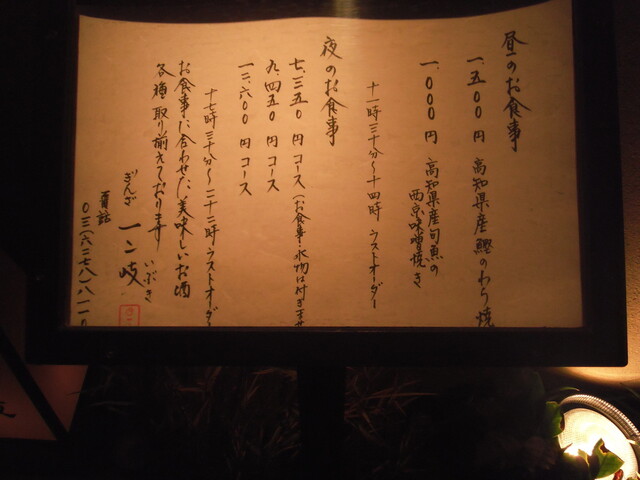 昼のお食事
一、五００円 高知県産鰹のわら焼
一、０００円 高知県産旬魚の
西京味噌焼き
十一時三十分〜十四時 ラストオーダー
夜のお食事
七、三五０円コース（お食事・水物は付きませ
九、四五０円コース
一二、六００円コース
十七時三十分〜二十二時ラストオーダ
お食事に合わせた美味しいお酒
各種取り揃えております
ぎんざ 一二岐 いぶき
電話
０三（六二七八）八一一０